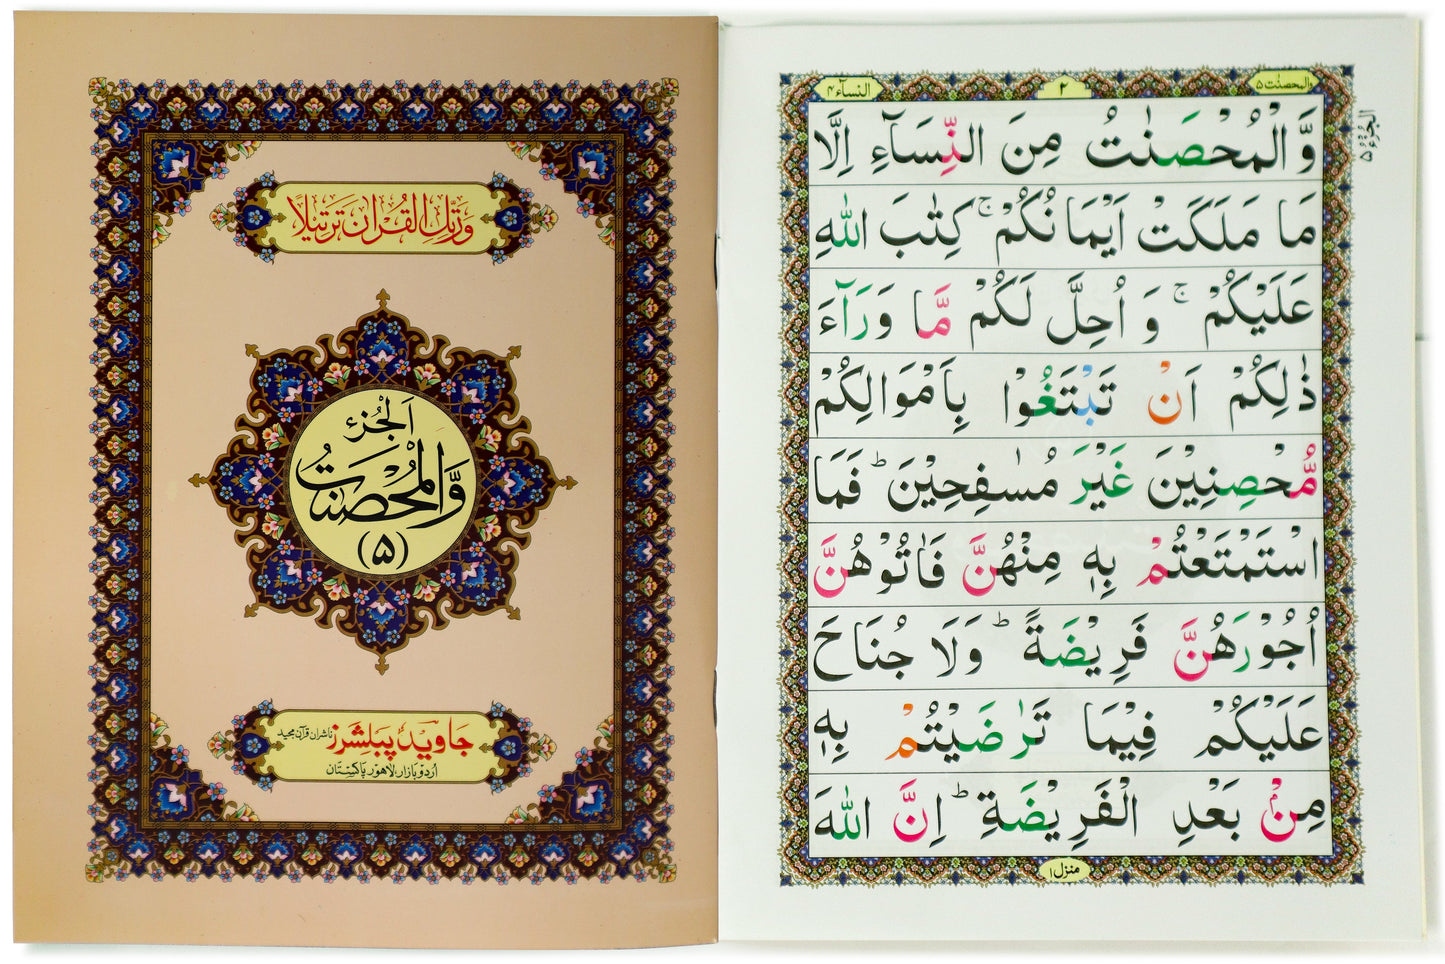 وَرَتِّلِ الْقُرْاٰنَ تَرْتِیْلًا
اَلْجُزْءُ
وَّالْمُحْصَنٰتُ
(۵)
جاوید پبلشرز ناشران قرآن مجید
اردو بازار، لاہور پاکستان
النسآء ۴
۲
والمحصنٰت ۵
الجزء ۵
وَّ الْمُحْصَنٰتُ مِنَ النِّسَآءِ اِلَّا
مَا مَلَكَتْ اَیْمَانُكُمْ ۚ كِتٰبَ اللّٰهِ
عَلَیْكُمْ ۚ وَ اُحِلَّ لَكُمْ مَّا وَرَآءَ
ذٰلِكُمْ اَنْ تَبْتَغُوْا بِاَمْوَالِكُمْ
مُّحْصِنِیْنَ غَیْرَ مُسٰفِحِیْنَ ؕ فَمَا
اسْتَمْتَعْتُمْ بِهٖ مِنْهُنَّ فَاٰتُوْهُنَّ
اُجُوْرَهُنَّ فَرِیْضَةً ؕ وَلَا جُنَاحَ
عَلَیْكُمْ فِیْمَا تَرٰضَیْتُمْ بِهٖ
مِنْۢ بَعْدِ الْفَرِیْضَةِ ؕ اِنَّ اللّٰهَ
منزل ۱